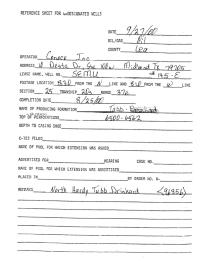 REFERENCE SHEET FOR UNDESIGNATED WELLS
DATE 9/27/00
OIL/GAS Oil
COUNTY Lea
OPERATOR Conoco Inc
ADDRESS 10 Desta Dr, Ste Midland Tx 79705
LEASE NAME, WELL NO. SEMU # 145-E
FOOTAGE LOCATION FROM THE N LINE AND FROM THE LINE
SECTION 25 TOWNSHIP 20s RANGE 37e
COMPLETION DATE 8/25/00
NAME OF PRODUCING FORMATION Tubb -
TOP OF PERFORATIONS 6500-6562
DEPTH TO CASING SHOE
C-123 FILED
NAME OF POOL FOR WHICH EXTENSION WAS ASKED
ADVERTISED FOR HEARING CASE NO.
NAME OF POOL FOR WHICH EXTENSION WAS ADVERTISED
PLACED IN BY ORDER NO. R-
REMARKS North Hardy Tubb Drinkard <96356>